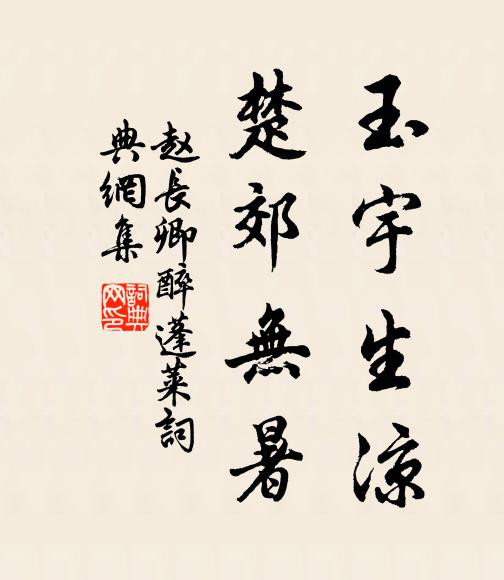 玉宇生涼
楚郊無暑
赵長卿醉蓬莱詞
典網集
詞典网印